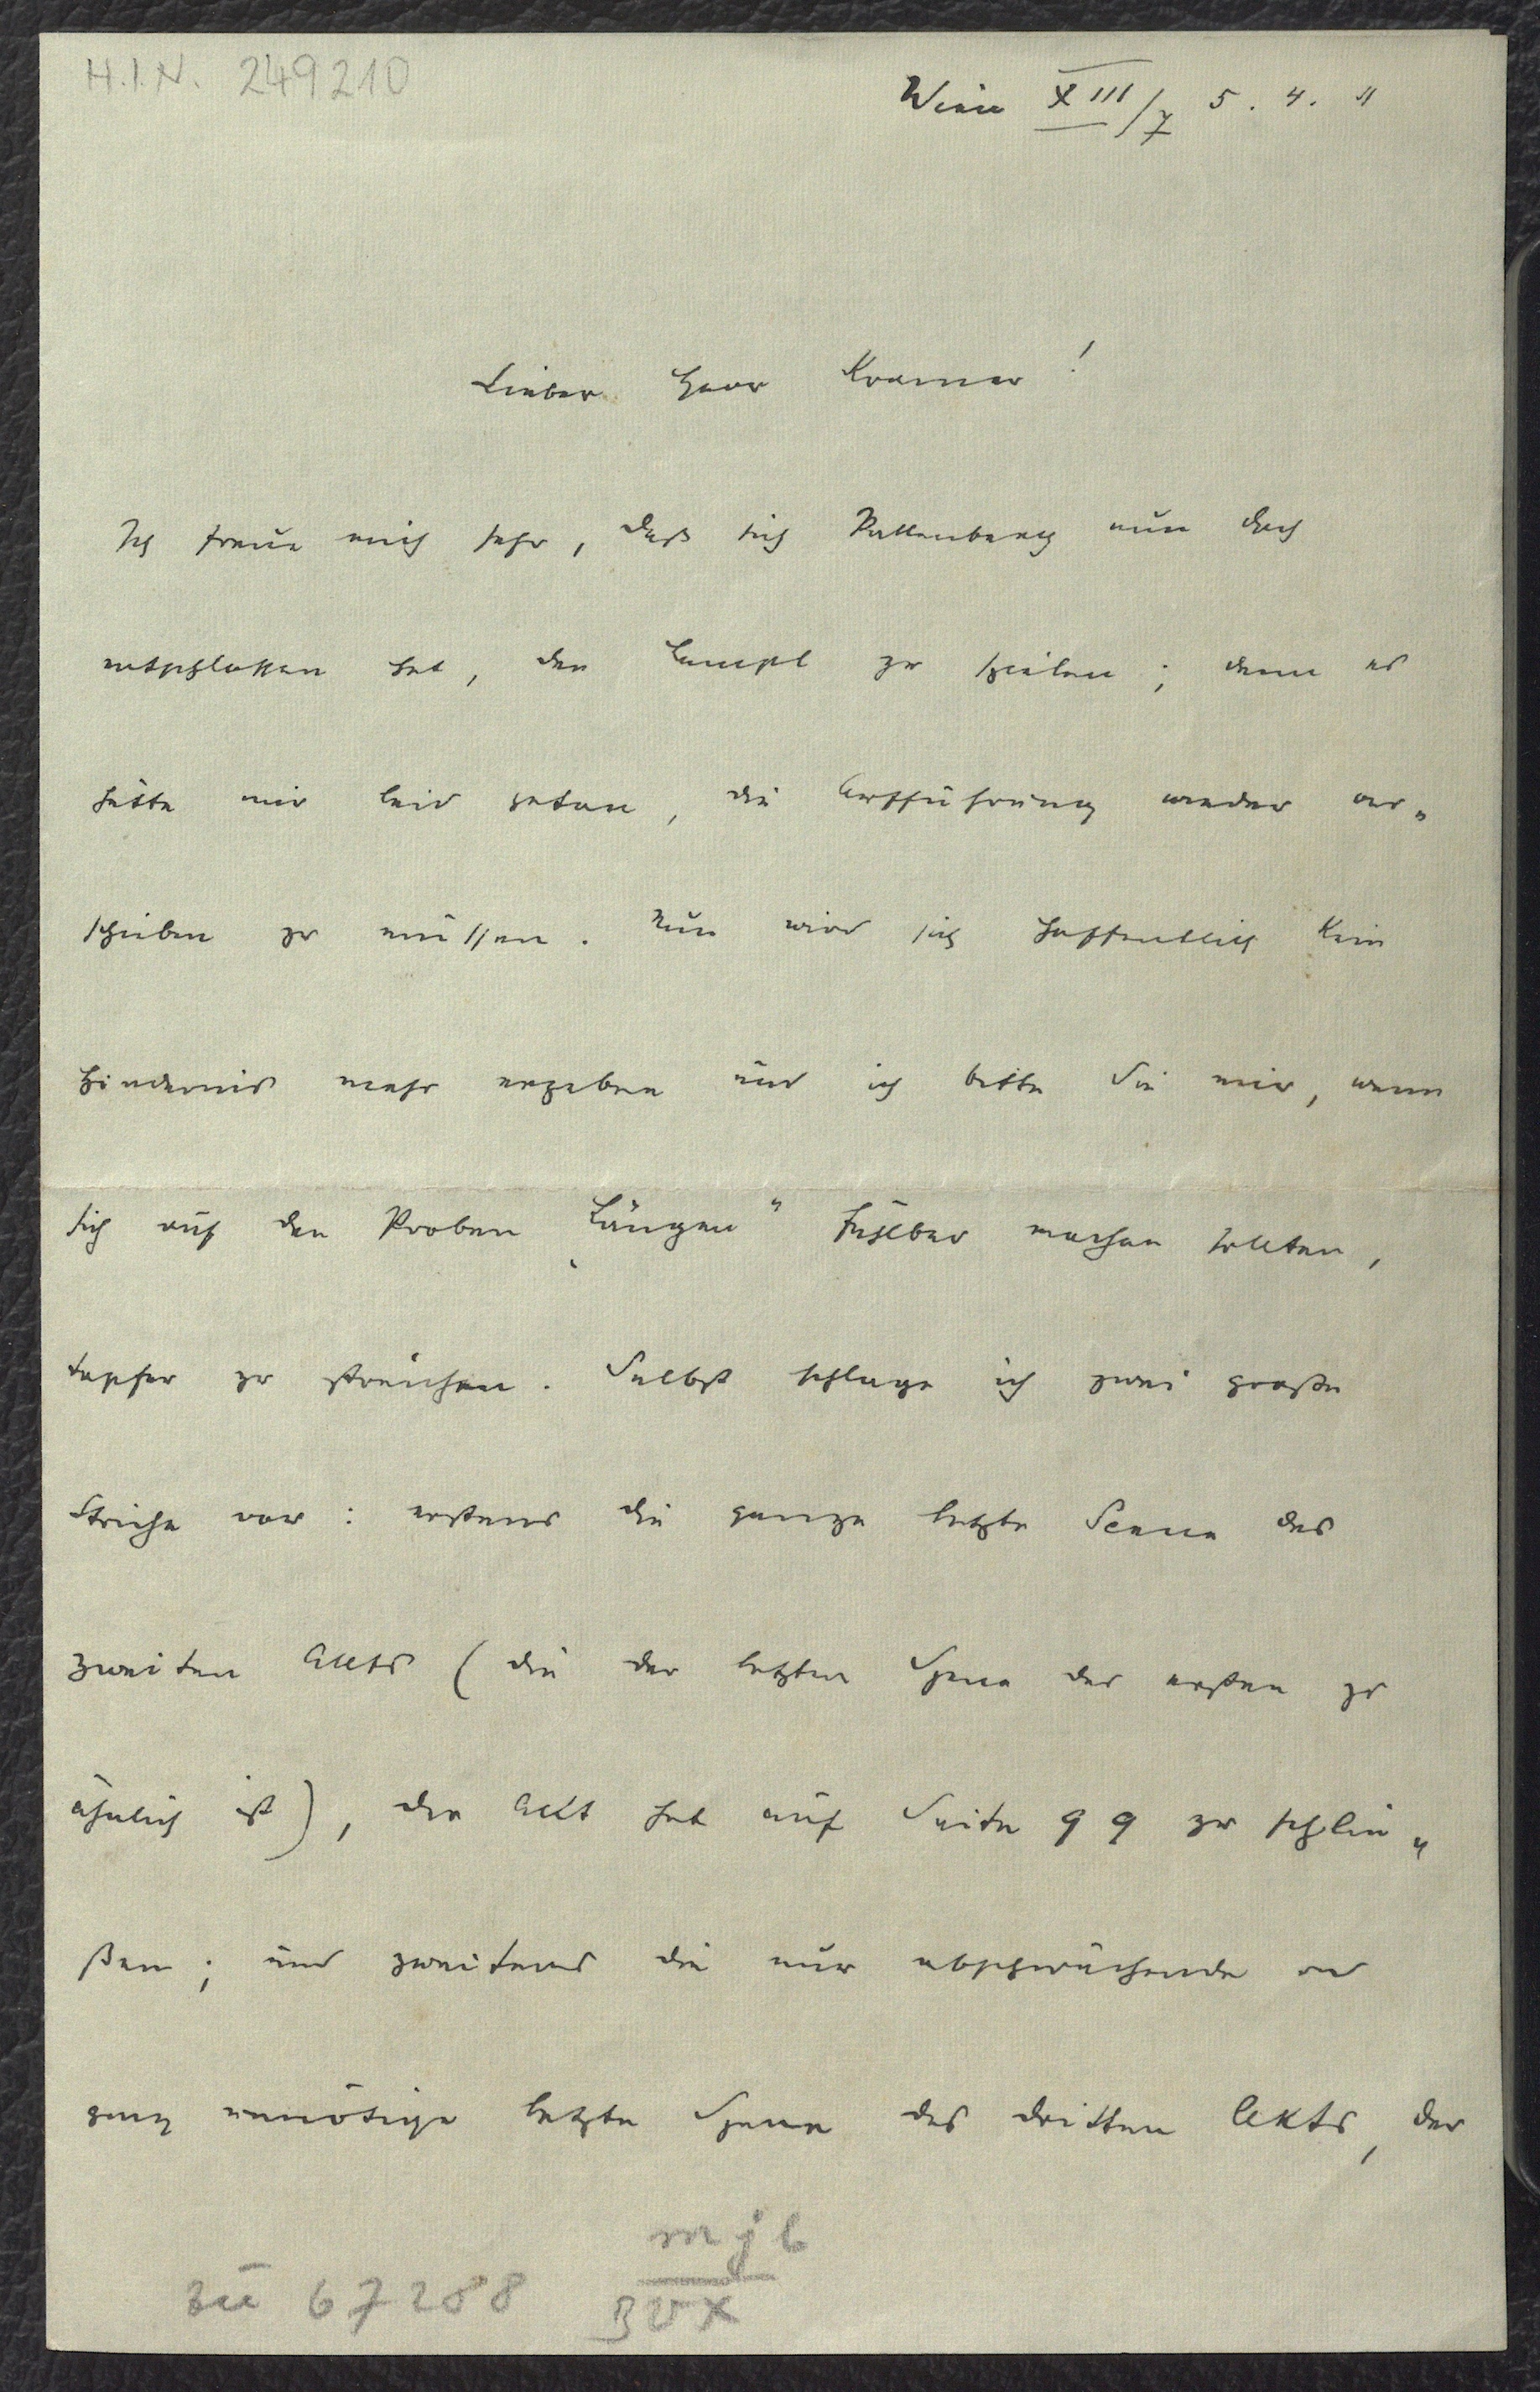 H.I.N. 249210
Wien XIII/7 5. 4. 11
Lieber Herr Kramer!
Ich freue mich sehr, daß sich Pallenberg nun doch
entschlossen hat, den Lampl zu spielen; denn es
hätte mir leid getan, die Aufführung wieder ver„
schieben zu müssen. Nun wird sich hoffentlich kein
Hindernis mehr ergeben und ich bitte Sie nur, wenn
sich auf den Proben „Längen“ fühlbar machen sollten,
tapfer zu streichen. Selbst schlage ich zwei große
Striche vor: erstens die ganze letzte Scene des
zweiten Akts (die der letzten Szene des ersten zu
ähnlich ist), der Akt hat auf Seite 99 zu schlie„
ßen; und zweitens die nur abschwächende und
ganz unnötige letzte Szene des dritten Akts, der
zu 67288
mjb
BVX